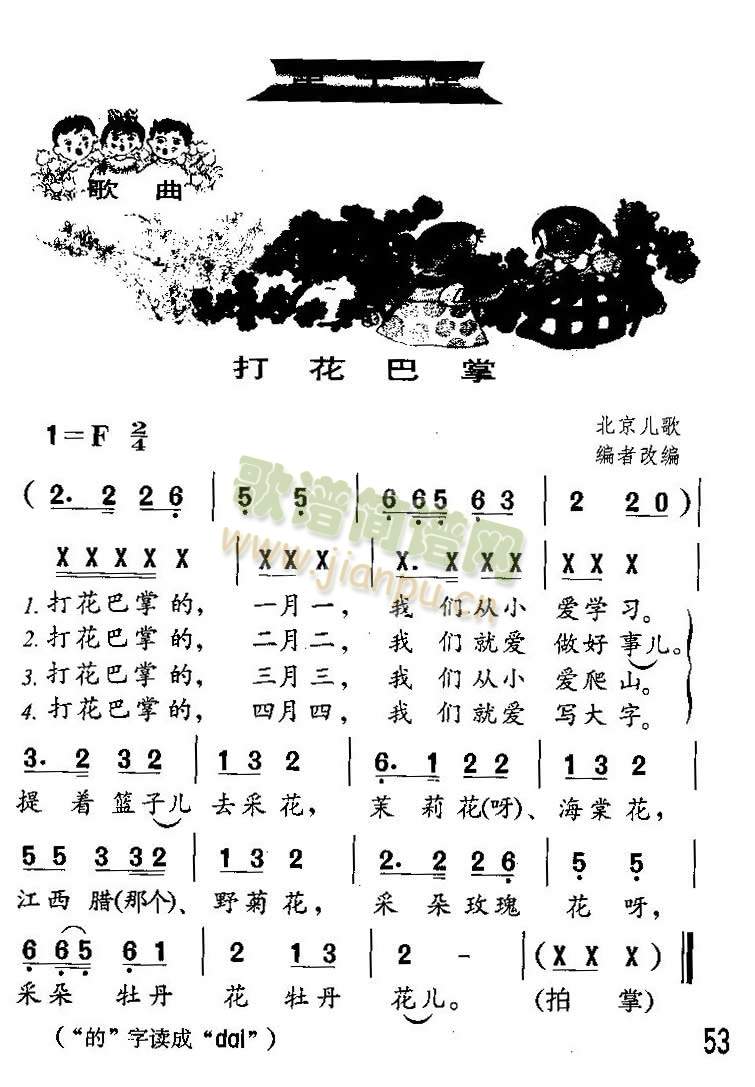 歌曲
打花巴掌
1=F 2/4
北京儿歌
编者改编
歌谱简谱网
www.jianpu.cn
( 2. 2 2 6 | 5 5 | 6 6 5 6 3 | 2 2 0 ) |
X X X X X | X X X | X. X X X | X X X
1. 打花巴掌的, 一月一, 我们从小 爱学习。
2. 打花巴掌的, 二月二, 我们就爱 做好事儿。
3. 打花巴掌的, 三月三, 我们从小 爱爬山。
4. 打花巴掌的, 四月四, 我们就爱 写大字。
3. 2 3 2 | 1 3 2 | 6. 1 2 2 | 1 3 2 |
提着篮子儿 去采花, 茉莉花(呀)、海棠花,
5 5 3 3 2 | 1 3 2 | 2. 2 2 6 | 5 5 |
江西腊(那个)、野菊花, 采朵玫瑰 花呀,
6 6 5 6 1 | 2 1 3 | 2 - | ( X X X ) ||
采朵 牡丹 花 牡丹 花儿。 (拍掌)
(“的”字读成“dai”)
53